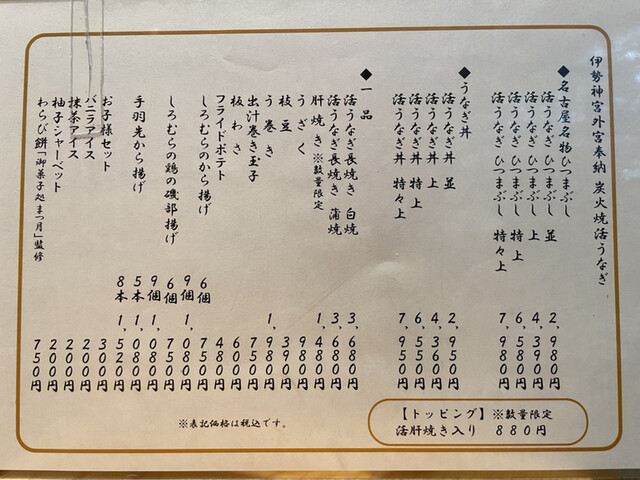 伊勢神宮外宮奉納 炭火焼活うなぎ
◆名古屋名物ひつまぶし
活うなぎひつまぶし 並 2,980円
活うなぎひつまぶし 上 4,390円
活うなぎひつまぶし 特上 6,580円
活うなぎひつまぶし 特々上 7,980円
◆うなぎ丼
活うなぎ丼 並 2,950円
活うなぎ丼 上 4,360円
活うなぎ丼 特上 6,550円
活うなぎ丼 特々上 7,950円
◆一品
活うなぎ長焼き 白焼 3,680円
活うなぎ長焼き 蒲焼 3,680円
肝焼き ※数量限定 1,480円
うざく 980円
枝豆 390円
う巻き 1,980円
出汁巻き玉子 750円
板わさ 600円
フライドポテト 480円
しろむらのから揚げ 6個 750円
9個 1,080円
しろむらの鶏の磯部揚げ 6個 750円
9個 1,080円
手羽先から揚げ 5本 1,080円
8本 1,520円
お子様セット 300円
バニラアイス 200円
抹茶アイス 200円
柚子シャーベット 200円
わらび餅「御菓子処まつ月」監修 750円
【トッピング】※数量限定
活肝焼き入り 880円
※表記価格は税込です。